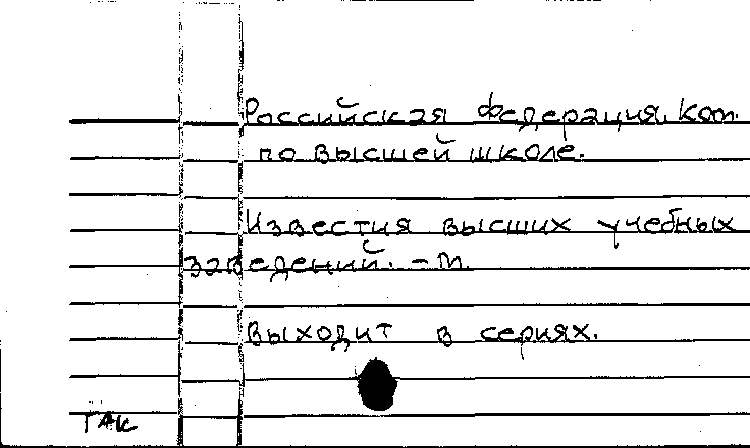 Российская Федерация. Ком.
по высшей школе.
Известия высших учебных
заведений. – М.
Выходит в сериях.
ТАК